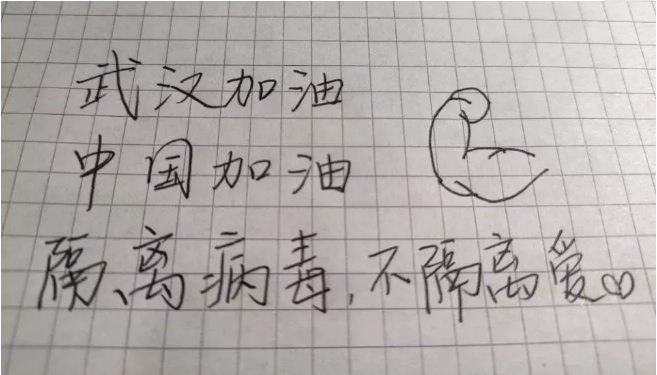 武汉加油
中国加油
隔离病毒,不隔离爱